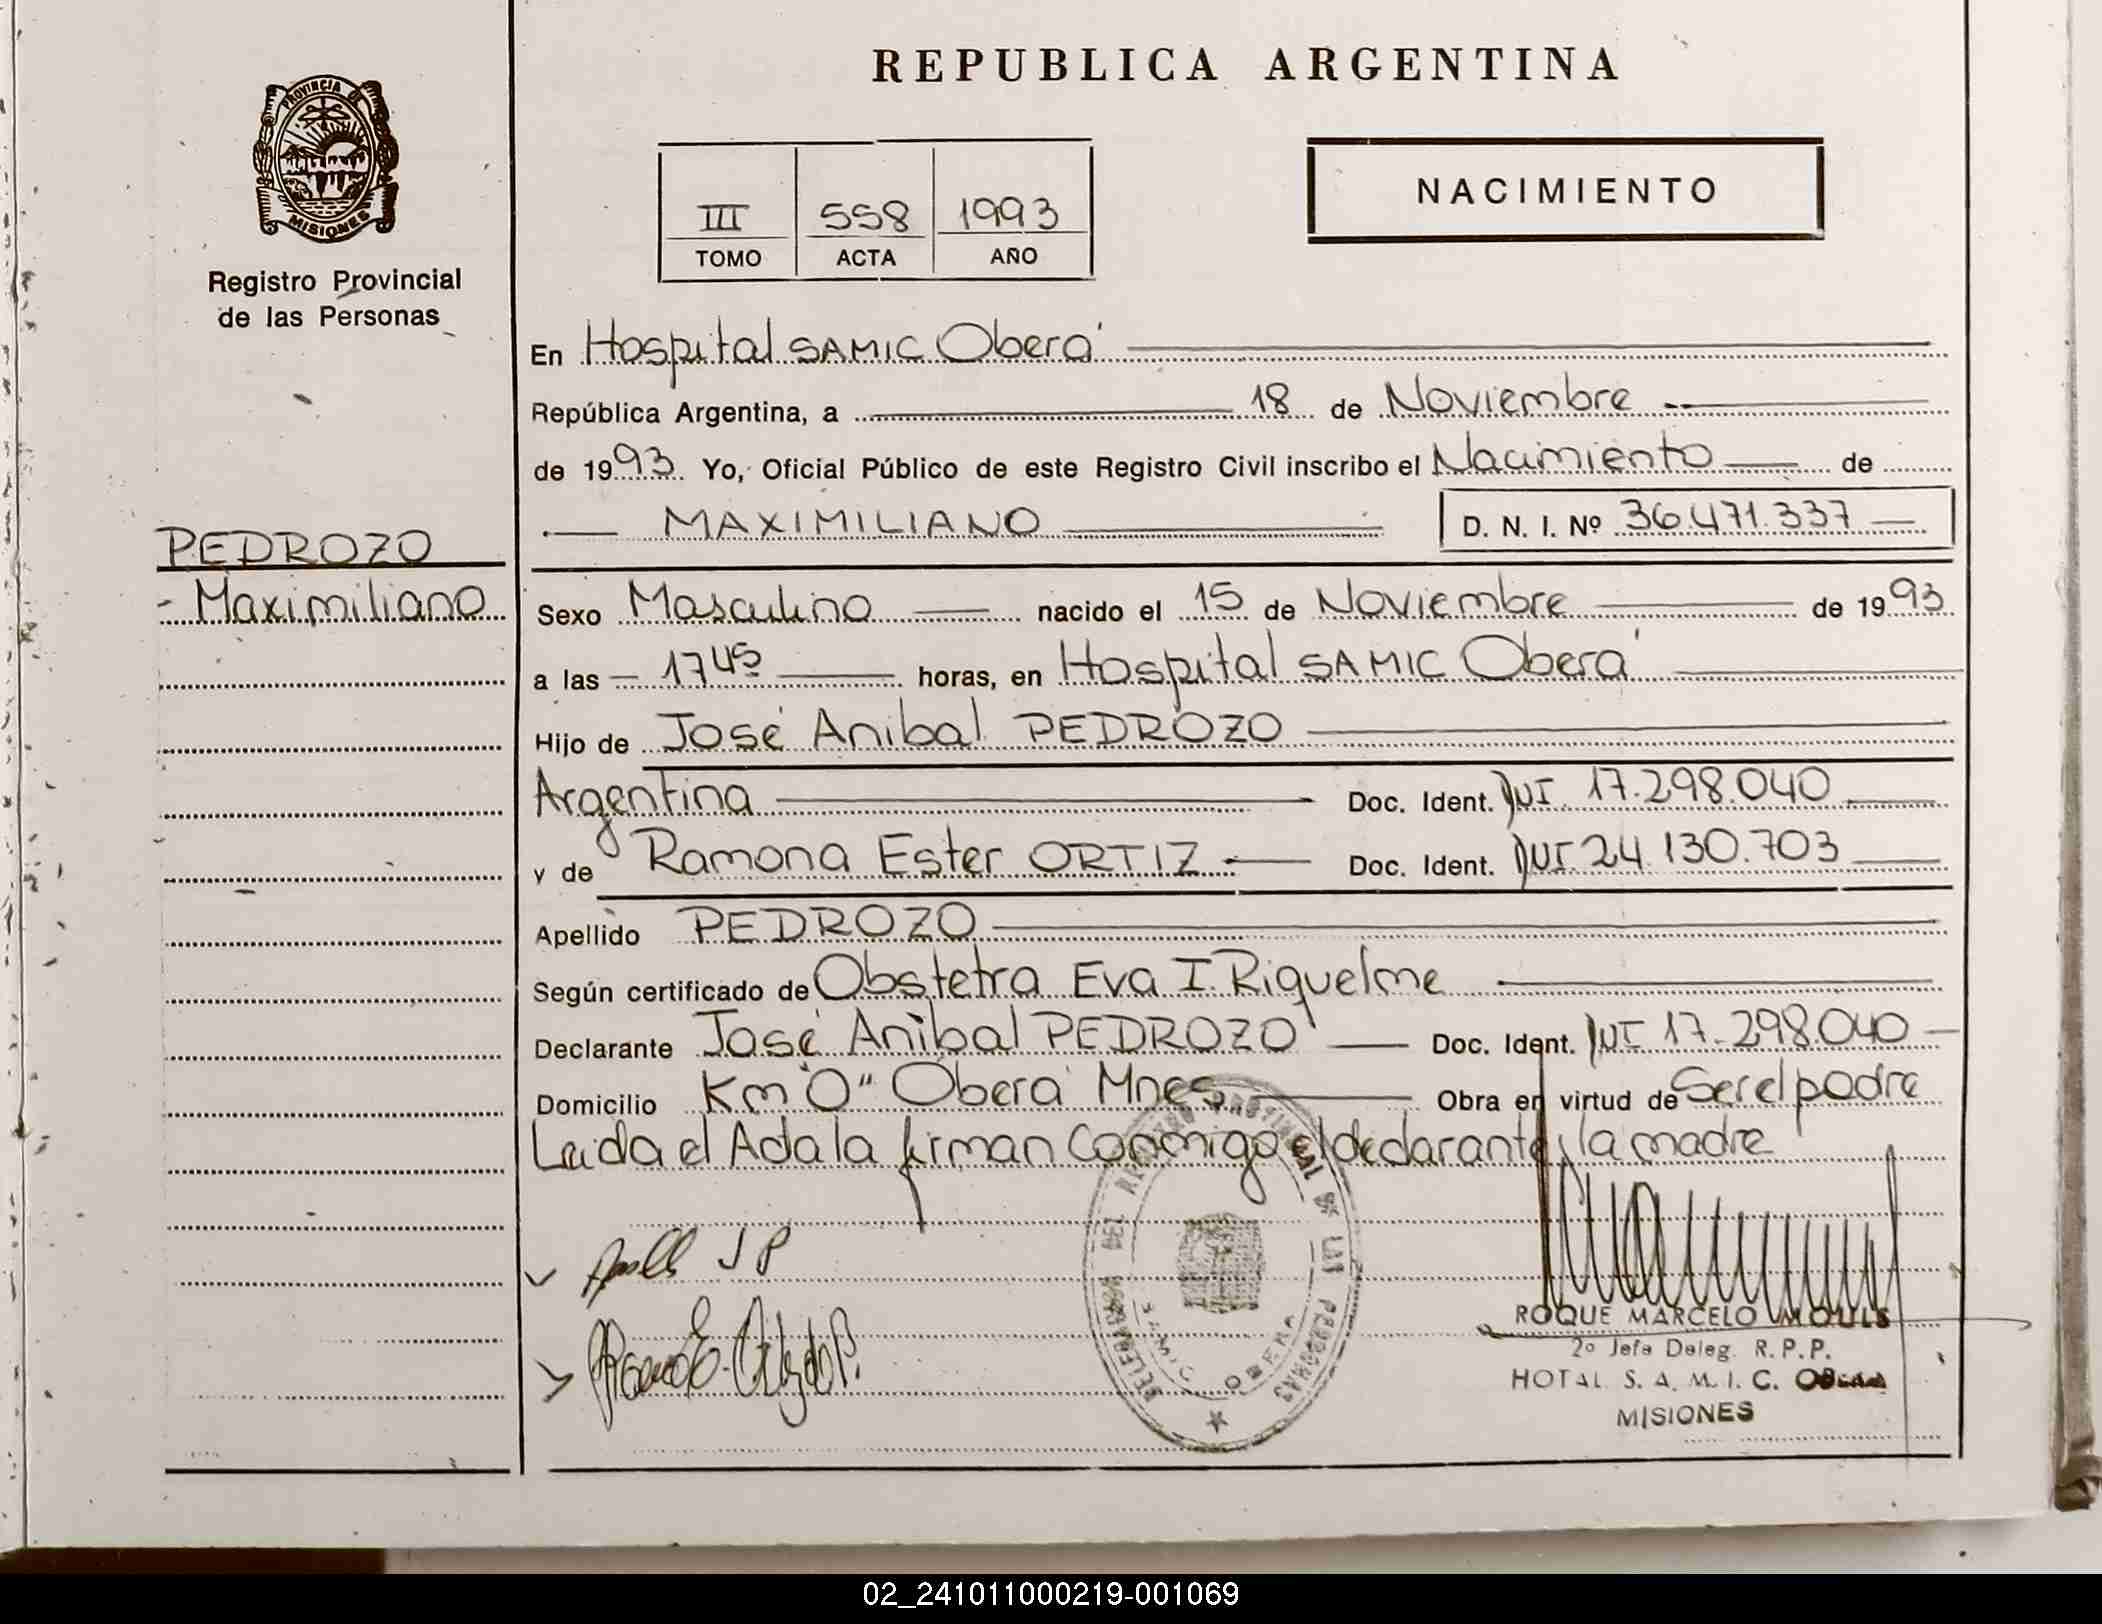 REPUBLICA ARGENTINA
PROVINCIA DE
MISIONES
Registro Provincial
de las Personas
III 558 1993
TOMO ACTA AÑO
NACIMIENTO
En Hospital SAMIC Oberá
República Argentina, a 18 de Noviembre
de 1993. Yo, Oficial Público de este Registro Civil inscribo el Nacimiento de
MAXIMILIANO D. N. I. Nº 36.471.337
PEDROZO
Maximiliano
Sexo Masculino nacido el 15 de Noviembre de 1993
a las 1745 horas, en Hospital SAMIC Oberá
Hijo de José Anibal PEDROZO
Argentina Doc. Ident. DNI 17.298.040
y de Ramona Ester ORTIZ Doc. Ident. DNI 24.130.703
Apellido PEDROZO
Según certificado de Obstetra Eva I. Riquelme
Declarante José Anibal PEDROZO Doc. Ident. DNI 17.298.040
Domicilio Km "0" Oberá Mnes Obra en virtud de Ser el padre
Leida el Acta la firman Conmigo el declarante y la madre
J P
SAMIC OBERA
ROQUE MARCELO MOULS
2º Jefe Deleg. R.P.P.
HOTAL S. A. M. I. C. OBERA
MISIONES
02_241011000219-001069